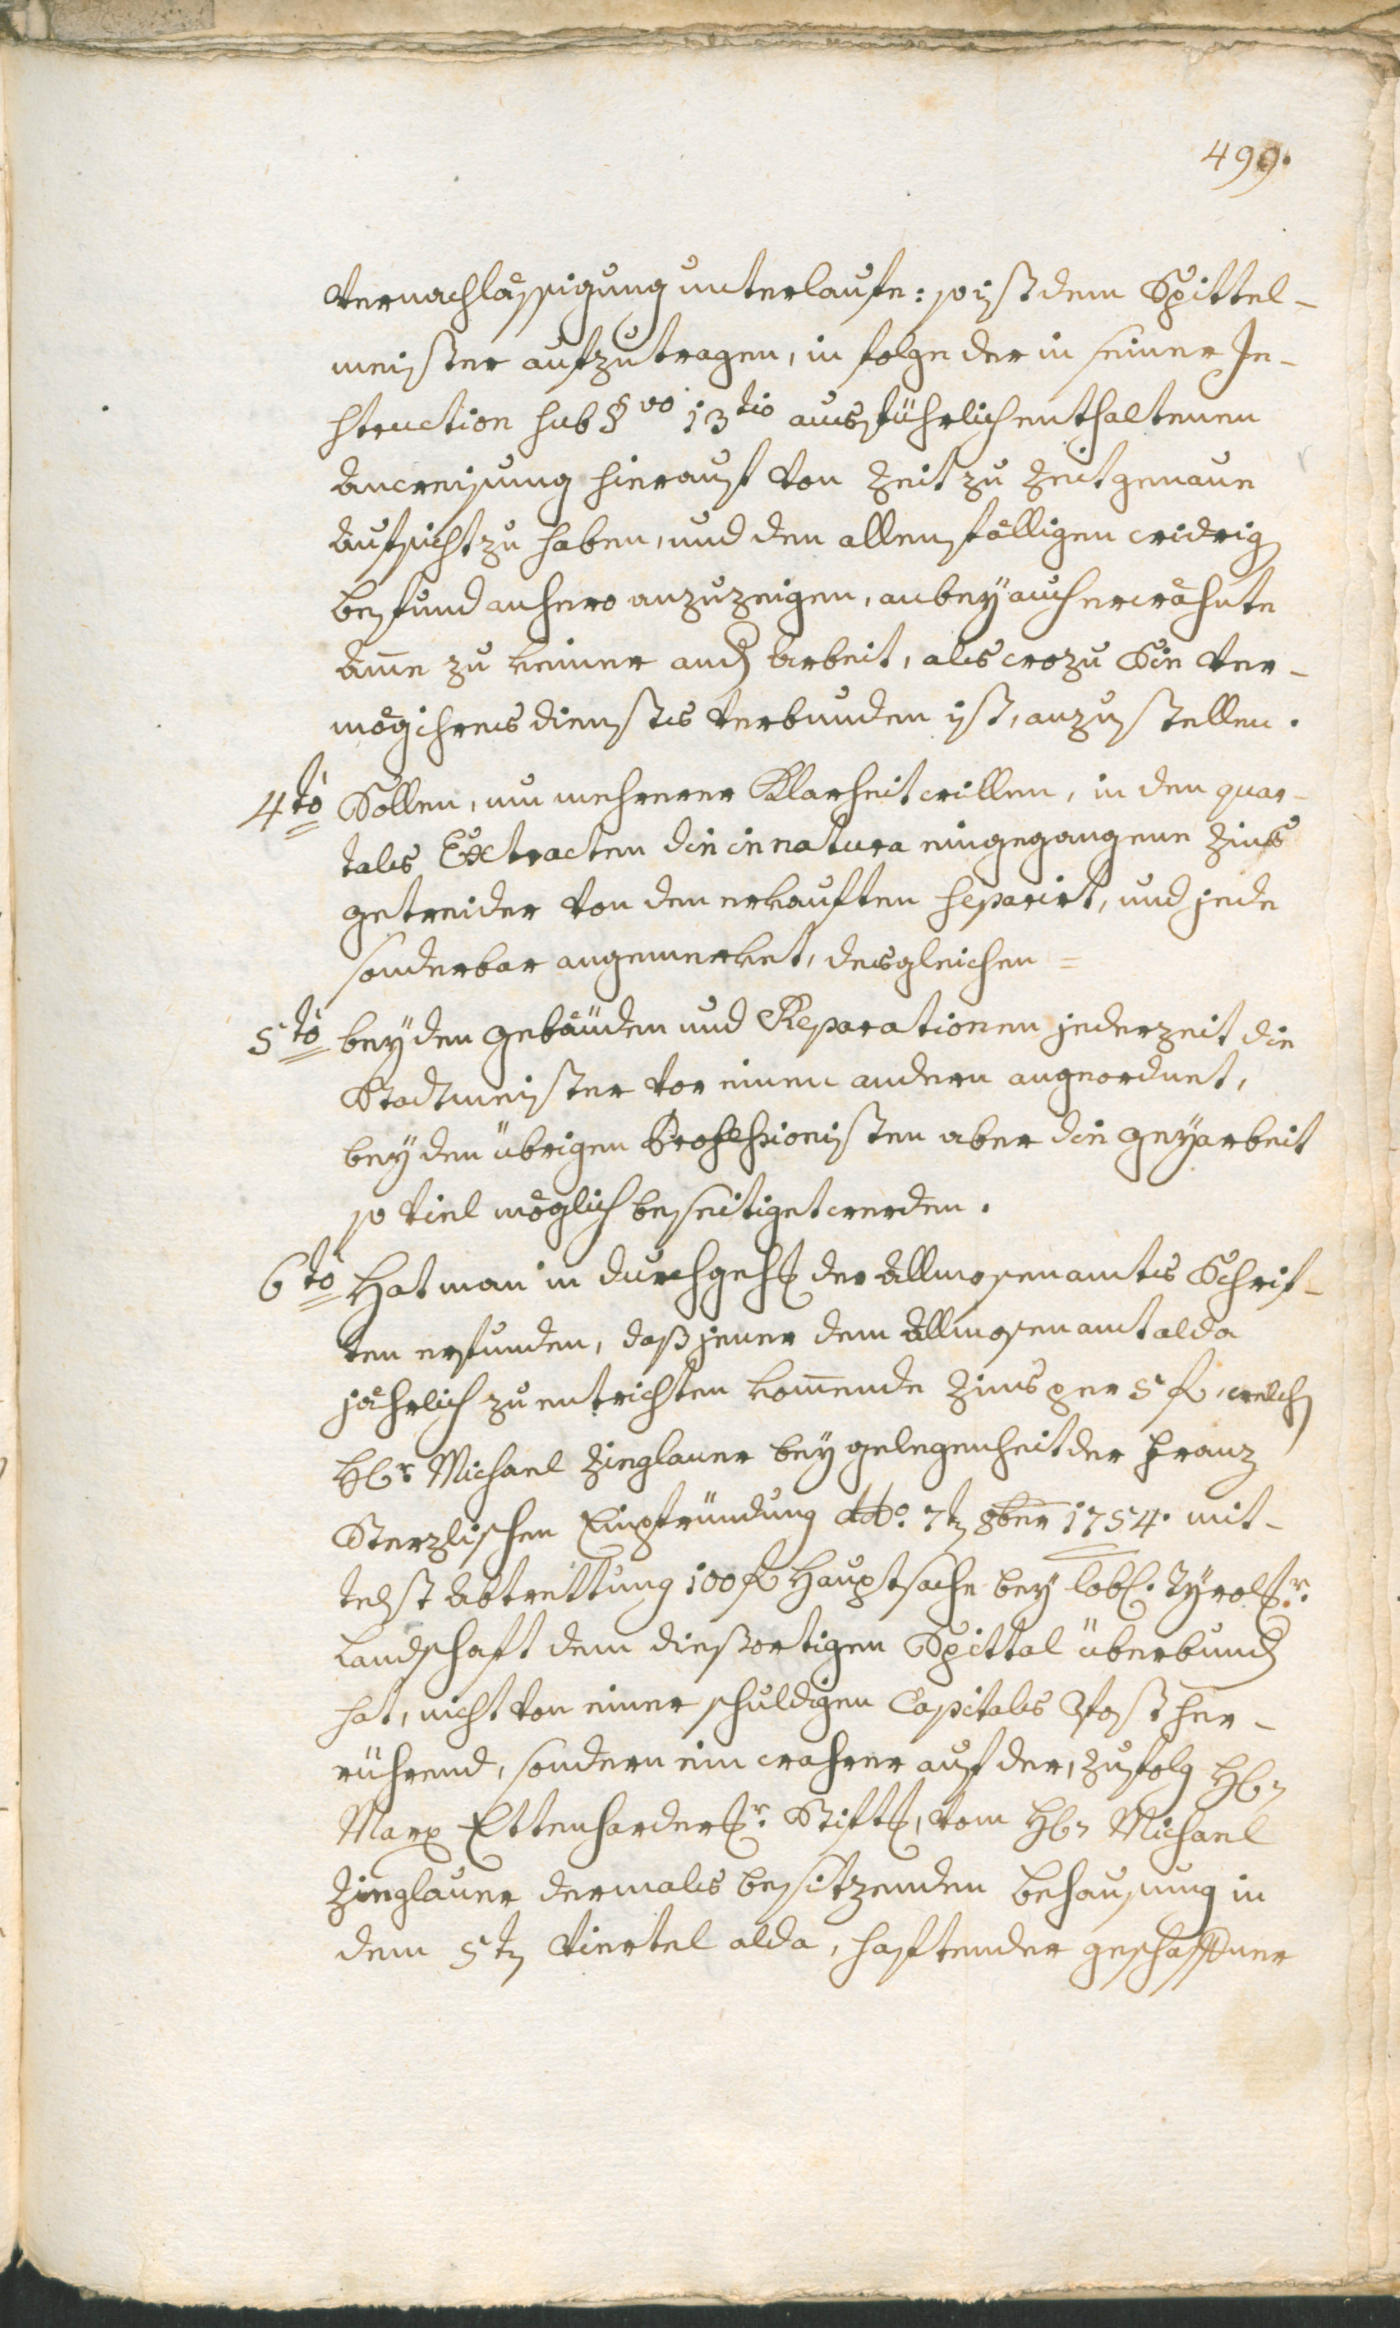 499.
vernachlässigung unterlaufe: so ist dem Spittel-
meister aufzutragen, in folge der in seiner In-
struction sub §vo 13tio ausführlich enthaltenen
anweisung hierauf von Zeit zu Zeit genaue
aufsicht zu haben, und den allenfälligen widrig
befund anhero anzuzeigen, anbey auch erwähnte
Ame zu keiner and arbeit, als worzu Sie ver-
mög ihres diensts verbunden ist, anzustellen.
4to Sollen, um mehrerer Klarheit willen, in den quar-
tals Extracten die in natura eingegangene Zinß
getreider von den erkauften separirt, und jede
sonderbar angemerket, desgleichen =
5to bey den gebäuden und Reparationen jederzeit die
Stadtmeister vor einem andern angeordnet,
bey den übrigen Professionisten aber die geyarbeit
so viel möglich beseitiget werden.
6to Hat man in durchgehg der Allmosenamts Schrif-
ten erfunden, daß jener dem Allmosenamt alda
jährlich zu entrichten komende Zins per 5 f, welch
Hr Michael Zinglauer bey gelegenheit der Franz
Sterzlischen Einpfründung ddo. 7t 8ber 1754. mit-
telst Abtrettung 100 f Hauptsache bey lobl. Tyrolr.
Landschaft dem diesßortigen Spittal überbund
hat, nicht von einer schuldigen Capitals Post her-
rührend, sondern ein wahrer auf der, zufolg Hn
Marx Ettenharderr. Stiftg, vom Hn Michael
Zinglauer dermals besitzenden behausung in
dem 5t Viertel alda, haftender geschaffner